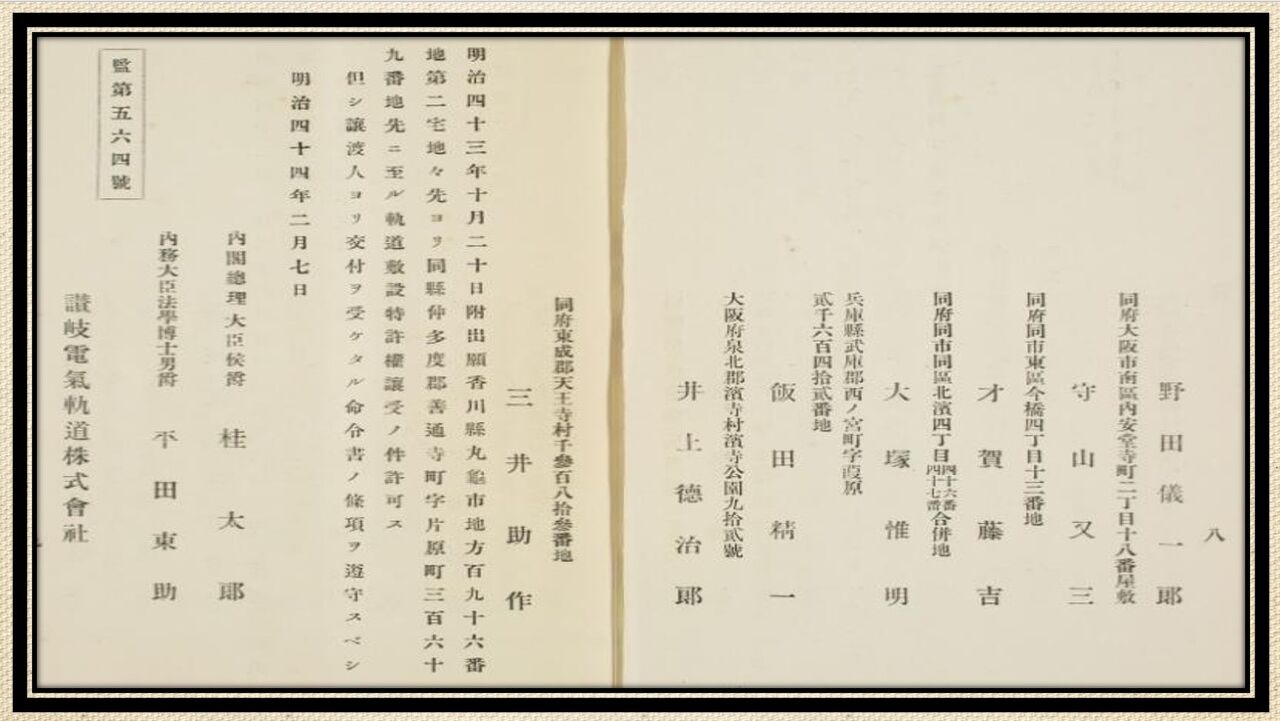 八
野田儀一郎
同府大阪市南區内安堂寺町二丁目十八番屋敷
守山又三
同府同市東區今橋四丁目十三番地
才賀藤吉
同府同市同區北濱四丁目四十六番四十七番合併地
大塚惟明
兵庫縣武庫郡西ノ宮町字葭原
貳千六百四拾貳番地
飯田精一
大阪府泉北郡濱寺村濱寺公園九拾貳號
井上德治郎
同府東成郡天王寺村千參百八拾參番地
三井助作
明治四十三年十月二十日附出願香川縣丸龜市地方百九十六番
地第二宅地々先ヨリ同縣仲多度郡善通寺町字片原町三百六十
九番地先ニ至ル軌道敷設特許權讓受ノ件許可ス
但シ讓渡人ヨリ交付ヲ受ケタル命令書ノ條項ヲ遵守スベシ
明治四十四年二月七日
内閣總理大臣侯爵 桂太郎
内務大臣法學博士男爵 平田東助
監第五六四號
讃岐電氣軌道株式會社